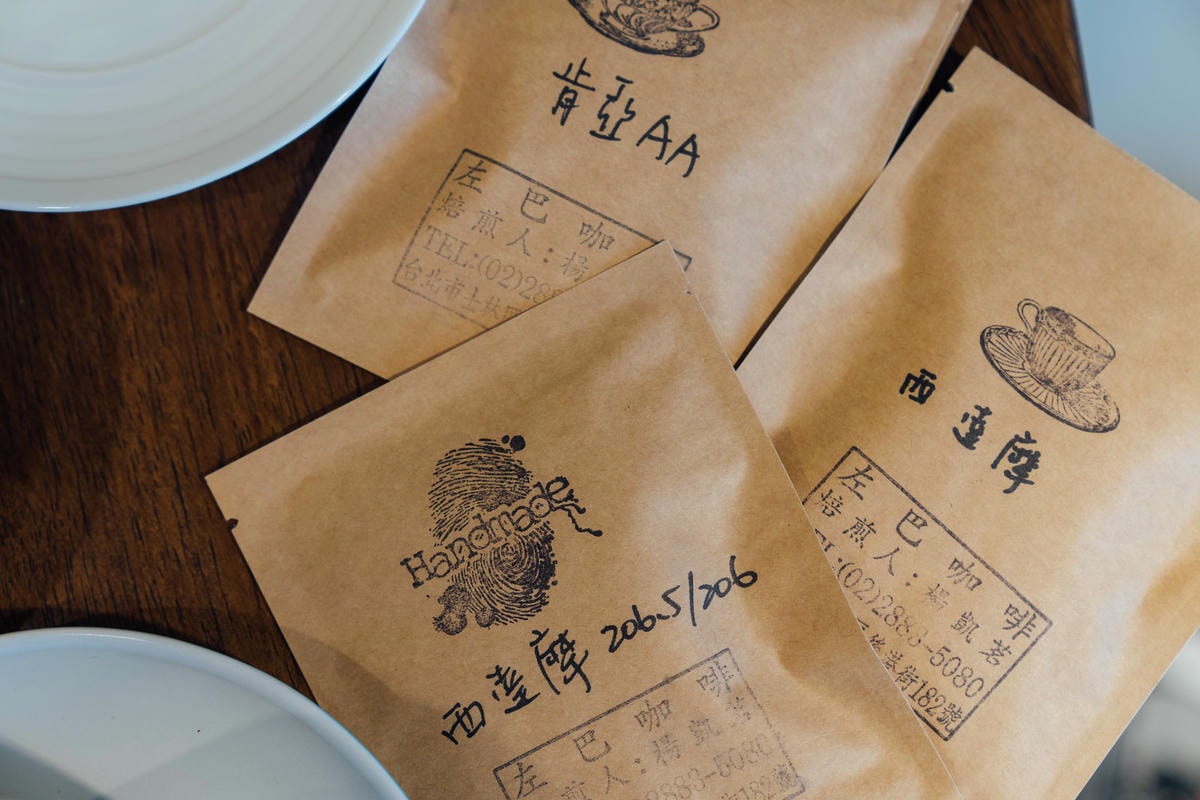 肯亞AA
左巴咖
焙煎人：楊
TEL:(02)288
台北市士林區
西達摩
左巴咖啡
焙煎人：楊凱茗
(02)2883-5080
後港街182號
Handmade
西達摩 206.5/206
左巴咖啡
焙煎人：楊凱茗
2883-5080
街182號